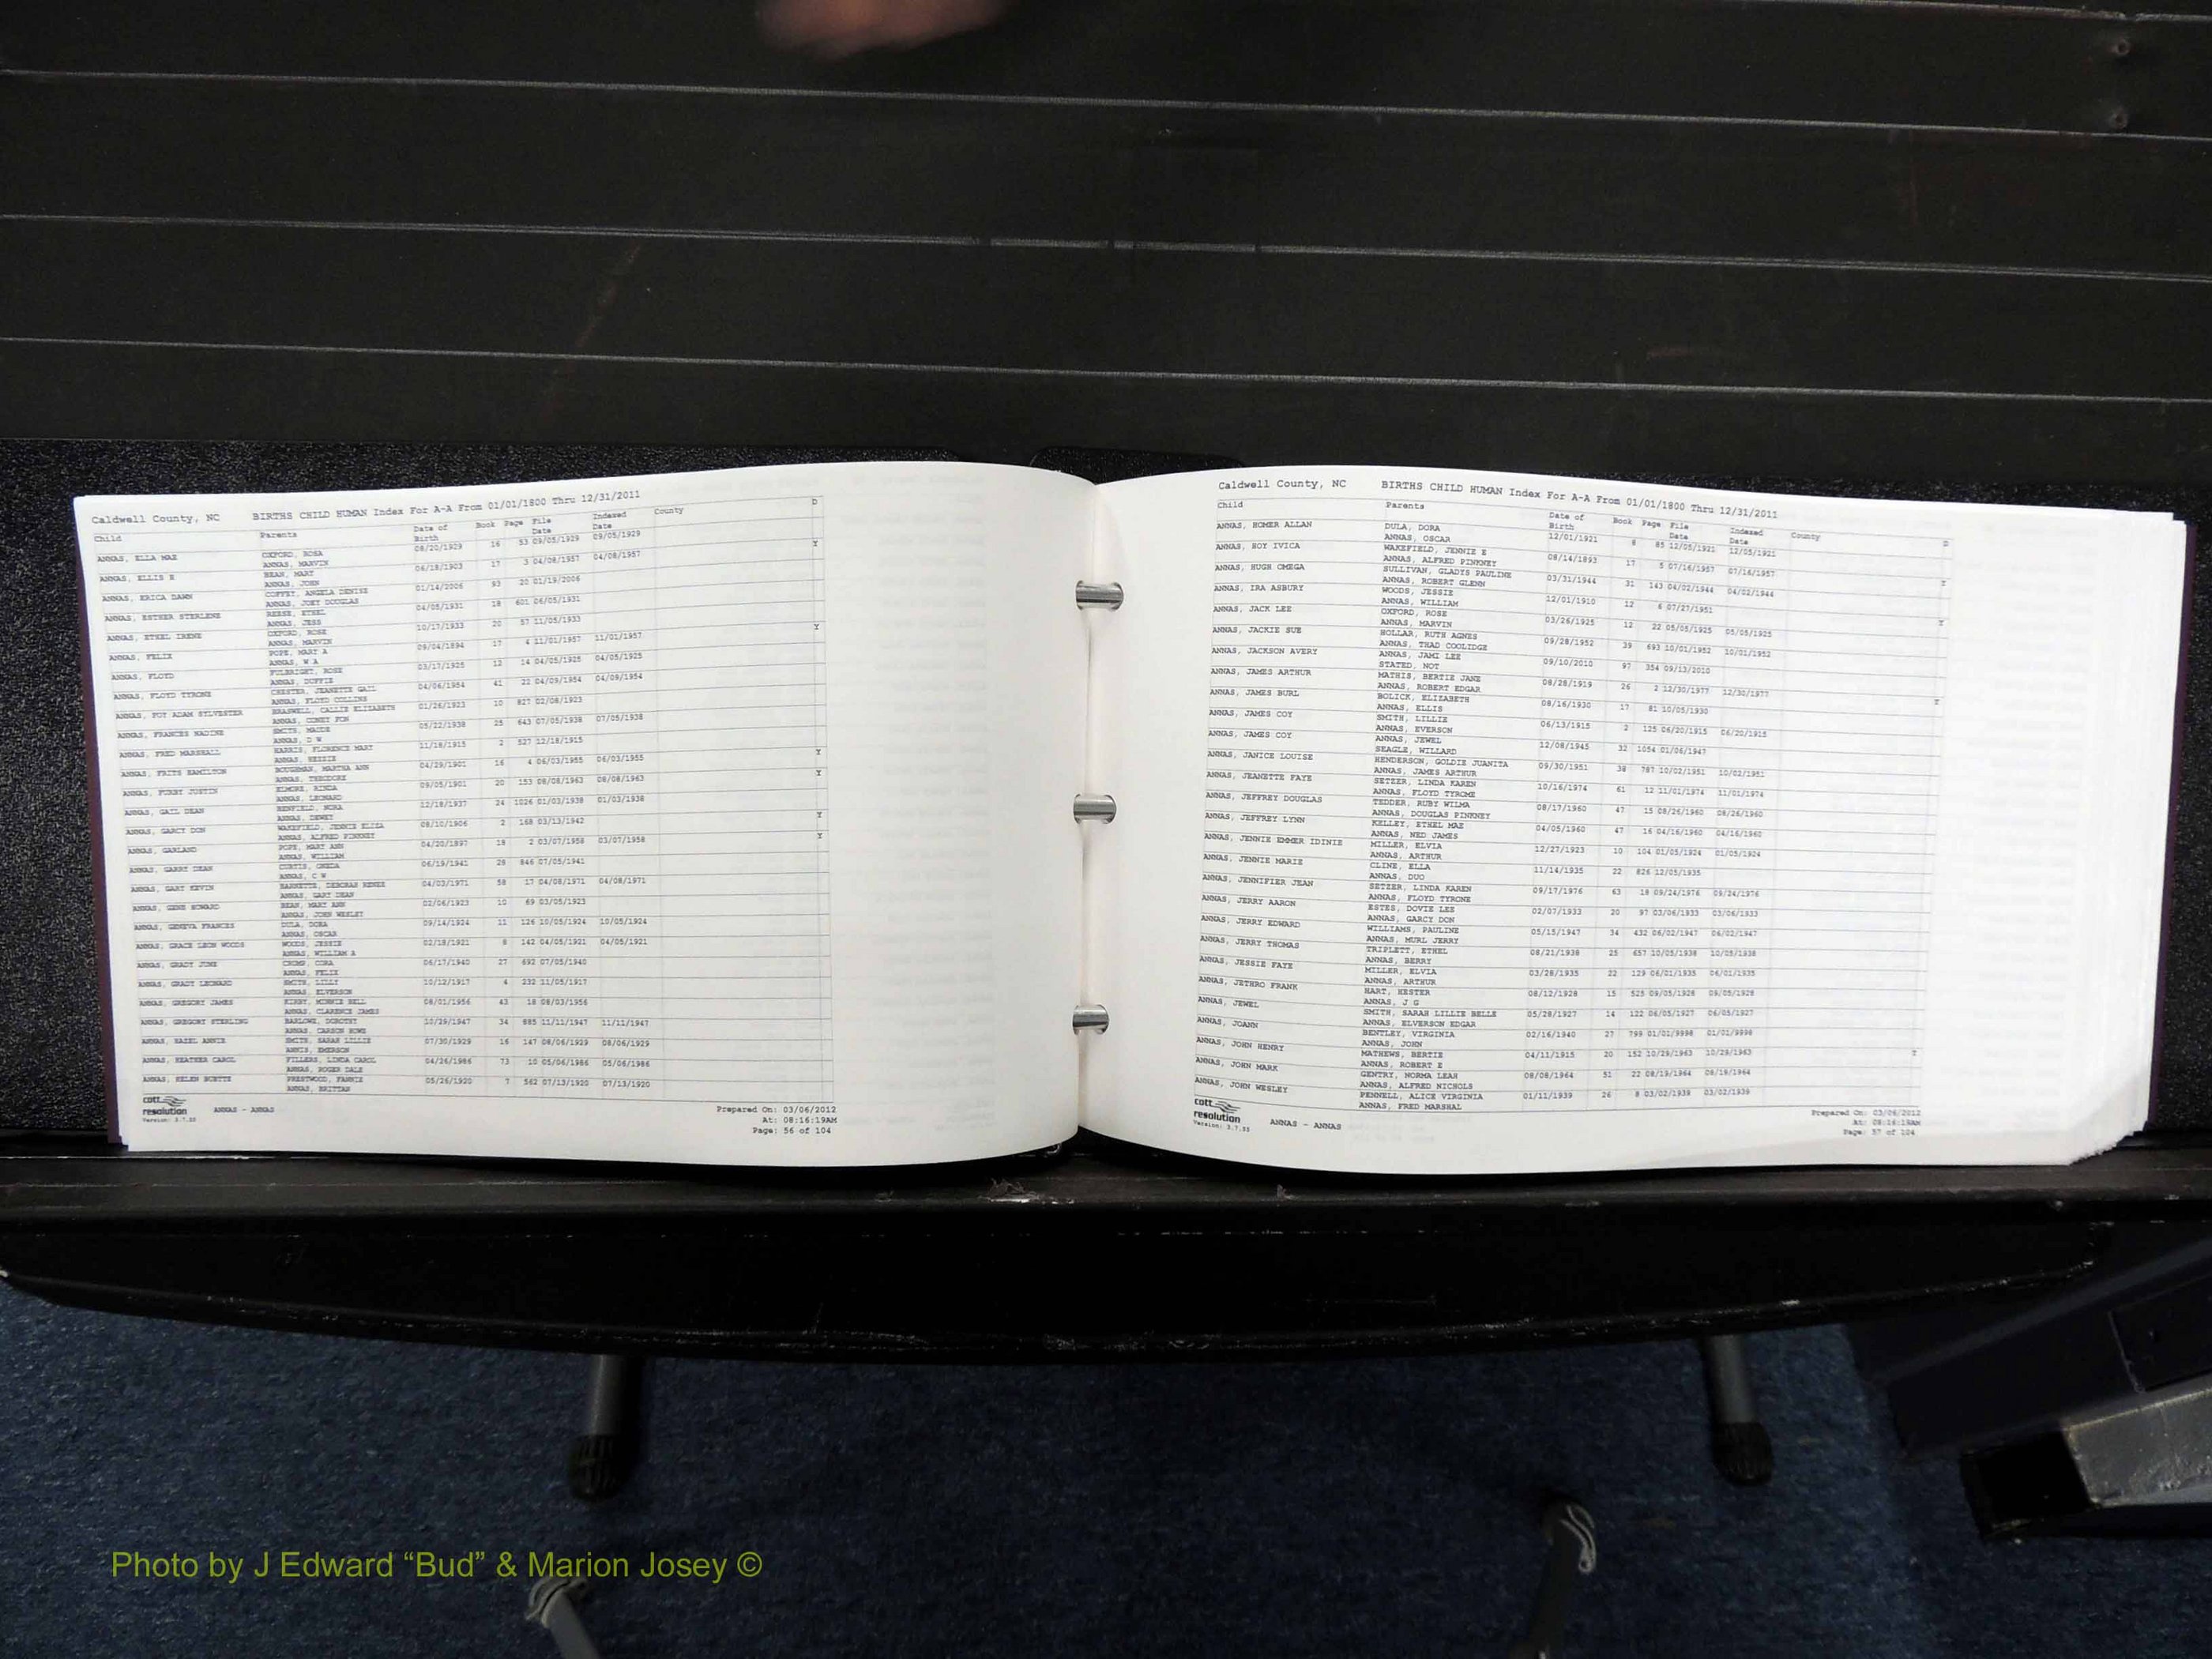 Caldwell County, NC BIRTHS CHILD HUMAN Index For A-A From 01/01/1800 Thru 12/31/2011
Child Parents Date of Birth Book Page File Date Indexed Date County D
ANNAS, ELLA MAE OXFORD, ROSA 08/20/1929 16 53 09/05/1929 09/05/1929
ANNAS, MARVIN
ANNAS, ELLIS R BEAN, MARY 06/18/1903 17 3 04/08/1957 04/08/1957 Y
ANNAS, JOHN
ANNAS, ERICA DAWN COFFEY, ANGELA DENISE 01/14/2006 93 20 01/19/2006
ANNAS, JOEY DOUGLAS
ANNAS, ESTHER STERLENE REESE, ETHEL 04/05/1931 18 601 06/05/1931
ANNAS, JESS
ANNAS, ETHEL IRENE OXFORD, ROSE 10/17/1933 20 57 11/05/1933
ANNAS, MARVIN
ANNAS, FELIX POPE, MARY A 09/04/1894 17 4 11/01/1957 11/01/1957 Y
ANNAS, W A
ANNAS, FLOYD FULBRIGHT, ROSE 03/17/1925 12 14 04/05/1925 04/05/1925
ANNAS, DUFFIE
ANNAS, FLOYD TYRONE CHESTER, JEANETTE GAIL 04/06/1954 41 22 04/09/1954 04/09/1954
ANNAS, FLOYD COLLINS
ANNAS, FOY ADAM SYLVESTER BRASWELL, CALLIE ELIZABETH 01/26/1923 10 827 02/08/1923
ANNAS, CONEY FON
ANNAS, FRANCES NADINE SMITH, MAUDE 05/22/1938 25 643 07/05/1938 07/05/1938
ANNAS, D W
ANNAS, FRED MARSHALL HARRIS, FLORENCE MARY 11/18/1915 2 527 12/18/1915
ANNAS, HEZZIE
ANNAS, FRITS HAMILTON BOUGHMAN, MARTHA ANN 04/29/1901 16 4 06/03/1955 06/03/1955 Y
ANNAS, THEODORE
ANNAS, FURBY JUSTIN ELMORE, RINDA 09/05/1901 20 153 08/08/1963 08/08/1963 Y
ANNAS, LEONARD
ANNAS, GAIL DEAN BENFIELD, NORA 12/18/1937 24 1026 01/03/1938 01/03/1938
ANNAS, DEWEY
ANNAS, GARCY DON WAKEFIELD, JENNIE ELIZA 08/10/1906 2 168 03/13/1942 Y
ANNAS, ALFRED PINKNEY
ANNAS, GARLAND POPE, MARY ANN 04/20/1897 18 2 03/07/1958 03/07/1958 Y
ANNAS, WILLIAM
ANNAS, GARRY DEAN CURTIS, ONEDA 06/19/1941 28 846 07/05/1941
ANNAS, C W
ANNAS, GARY KEVIN BARNETTE, DEBORAH RENEE 04/03/1971 58 17 04/08/1971 04/08/1971
ANNAS, GARY DEAN
ANNAS, GENE HOWARD BEAN, MARY ANN 02/06/1923 10 69 03/05/1923
ANNAS, JOHN WESLEY
ANNAS, GENEVA FRANCES DULA, DORA 09/14/1924 11 126 10/05/1924 10/05/1924
ANNAS, OSCAR
ANNAS, GRACE LEON WOODS WOODS, JESSIE 02/18/1921 8 142 04/05/1921 04/05/1921
ANNAS, WILLIAM A
ANNAS, GRADY JUNE CRUMP, CORA 06/17/1940 27 692 07/05/1940
ANNAS, FELIX
ANNAS, GRADY LEONARD SMITH, LILLY 10/12/1917 4 232 11/05/1917
ANNAS, ELVERSON
ANNAS, GREGORY JAMES KIRBY, MINNIE BELL 08/01/1956 43 18 08/03/1956
ANNAS, CLARENCE JAMES
ANNAS, GREGORY STERLING BARLOWE, DOROTHY 10/29/1947 34 885 11/11/1947 11/11/1947
ANNAS, CARSON HOWE
ANNAS, HAZEL ANNIE SMITH, SARAH LILLIE 07/30/1929 16 147 08/06/1929 08/06/1929
ANNIS, EMERSON
ANNAS, HEATHER CAROL FILLERS, LINDA CAROL 04/26/1986 73 10 05/06/1986 05/06/1986
ANNAS, ROGER DALE
ANNAS, HELEN BURTTE PRESTWOOD, FANNIE 05/26/1920 7 562 07/13/1920 07/13/1920
ANNAS, BRITTAN
cott resolution Version: 3.7.55 ANNAS - ANNAS
Prepared On: 03/06/2012
At: 08:16:19AM
Page: 56 of 104
Caldwell County, NC BIRTHS CHILD HUMAN Index For A-A From 01/01/1800 Thru 12/31/2011
Child Parents Date of Birth Book Page File Date Indexed Date County D
ANNAS, HOMER ALLAN DULA, DORA 12/01/1921 8 85 12/05/1921 12/05/1921
ANNAS, OSCAR
ANNAS, HOY IVICA WAKEFIELD, JENNIE E 08/14/1893 17 5 07/16/1957 07/16/1957 Y
ANNAS, ALFRED PINKNEY
ANNAS, HUGH OMEGA SULLIVAN, GLADYS PAULINE 03/31/1944 31 143 04/02/1944 04/02/1944
ANNAS, ROBERT GLENN
ANNAS, IRA ASBURY WOODS, JESSIE 12/01/1910 12 6 07/27/1951 Y
ANNAS, WILLIAM
ANNAS, JACK LEE OXFORD, ROSE 03/26/1925 12 22 05/05/1925 05/05/1925
ANNAS, MARVIN
ANNAS, JACKIE SUE HOLLAR, RUTH AGNES 09/28/1952 39 693 10/01/1952 10/01/1952
ANNAS, THAD COOLIDGE
ANNAS, JACKSON AVERY ANNAS, JAMI LEE 09/10/2010 97 354 09/13/2010
STATED, NOT
ANNAS, JAMES ARTHUR MATHIS, BERTIE JANE 08/28/1919 26 2 12/30/1977 12/30/1977 Y
ANNAS, ROBERT EDGAR
ANNAS, JAMES BURL BOLICK, ELIZABETH 08/16/1930 17 81 10/05/1930
ANNAS, ELLIS
ANNAS, JAMES COY SMITH, LILLIE 06/13/1915 2 125 06/20/1915 06/20/1915
ANNAS, EVERSON
ANNAS, JAMES COY ANNAS, JEWEL 12/08/1945 32 1054 01/06/1947
SEAGLE, WILLARD
ANNAS, JANICE LOUISE HENDERSON, GOLDIE JUANITA 09/30/1951 38 787 10/02/1951 10/02/1951
ANNAS, JAMES ARTHUR
ANNAS, JEANETTE FAYE SETZER, LINDA KAREN 10/16/1974 61 12 11/01/1974 11/01/1974
ANNAS, FLOYD TYROME
ANNAS, JEFFREY DOUGLAS TEDDER, RUBY WILMA 08/17/1960 47 15 08/26/1960 08/26/1960
ANNAS, DOUGLAS PINKNEY
ANNAS, JEFFREY LYNN KELLEY, ETHEL MAE 04/05/1960 47 16 04/16/1960 04/16/1960
ANNAS, NED JAMES
ANNAS, JENNIE EMMER IDINIE MILLER, ELVIA 12/27/1923 10 104 01/05/1924 01/05/1924
ANNAS, ARTHUR
ANNAS, JENNIE MARIE CLINE, ELLA 11/14/1935 22 826 12/05/1935
ANNAS, DUO
ANNAS, JENNIFIER JEAN SETZER, LINDA KAREN 09/17/1976 63 18 09/24/1976 09/24/1976
ANNAS, FLOYD TYRONE
ANNAS, JERRY AARON ESTES, DOVIE LEE 02/07/1933 20 97 03/06/1933 03/06/1933
ANNAS, GARCY DON
ANNAS, JERRY EDWARD WILLIAMS, PAULINE 05/15/1947 34 432 06/02/1947 06/02/1947
ANNAS, MURL JERRY
ANNAS, JERRY THOMAS TRIPLETT, ETHEL 08/21/1938 25 657 10/05/1938 10/05/1938
ANNAS, BERRY
ANNAS, JESSIE FAYE MILLER, ELVIA 03/28/1935 22 129 06/01/1935 06/01/1935
ANNAS, ARTHUR
ANNAS, JETHRO FRANK HART, HESTER 08/12/1928 15 525 09/05/1928 09/05/1928
ANNAS, J G
ANNAS, JEWEL SMITH, SARAH LILLIE BELLE 05/28/1927 14 122 06/05/1927 06/05/1927
ANNAS, ELVERSON EDGAR
ANNAS, JOANN BENTLEY, VIRGINIA 02/16/1940 27 799 01/01/9998 01/01/9998
ANNAS, JOHN
ANNAS, JOHN HENRY MATHEWS, BERTIE 04/11/1915 20 152 10/29/1963 10/29/1963 Y
ANNAS, ROBERT E
ANNAS, JOHN MARK GENTRY, NORMA LEAH 08/08/1964 51 22 08/19/1964 08/19/1964
ANNAS, ALFRED NICHOLS
ANNAS, JOHN WESLEY PENNELL, ALICE VIRGINIA 01/11/1939 26 8 03/02/1939 03/02/1939
ANNAS, FRED MARSHAL
cott resolution Version: 3.7.55 ANNAS - ANNAS
Prepared On: 03/06/2012
At: 08:16:19AM
Page: 57 of 104
Photo by J Edward “Bud” & Marion Josey ©